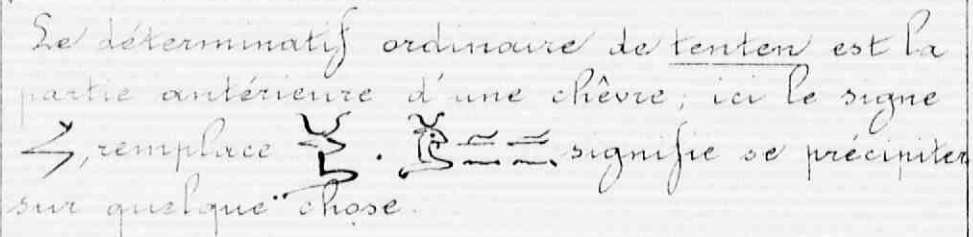 Le déterminatif ordinaire de tenten est la
partie antérieure d'une chêvre; ici le signe
, remplace . signifie se précipiter
sur quelque chose.